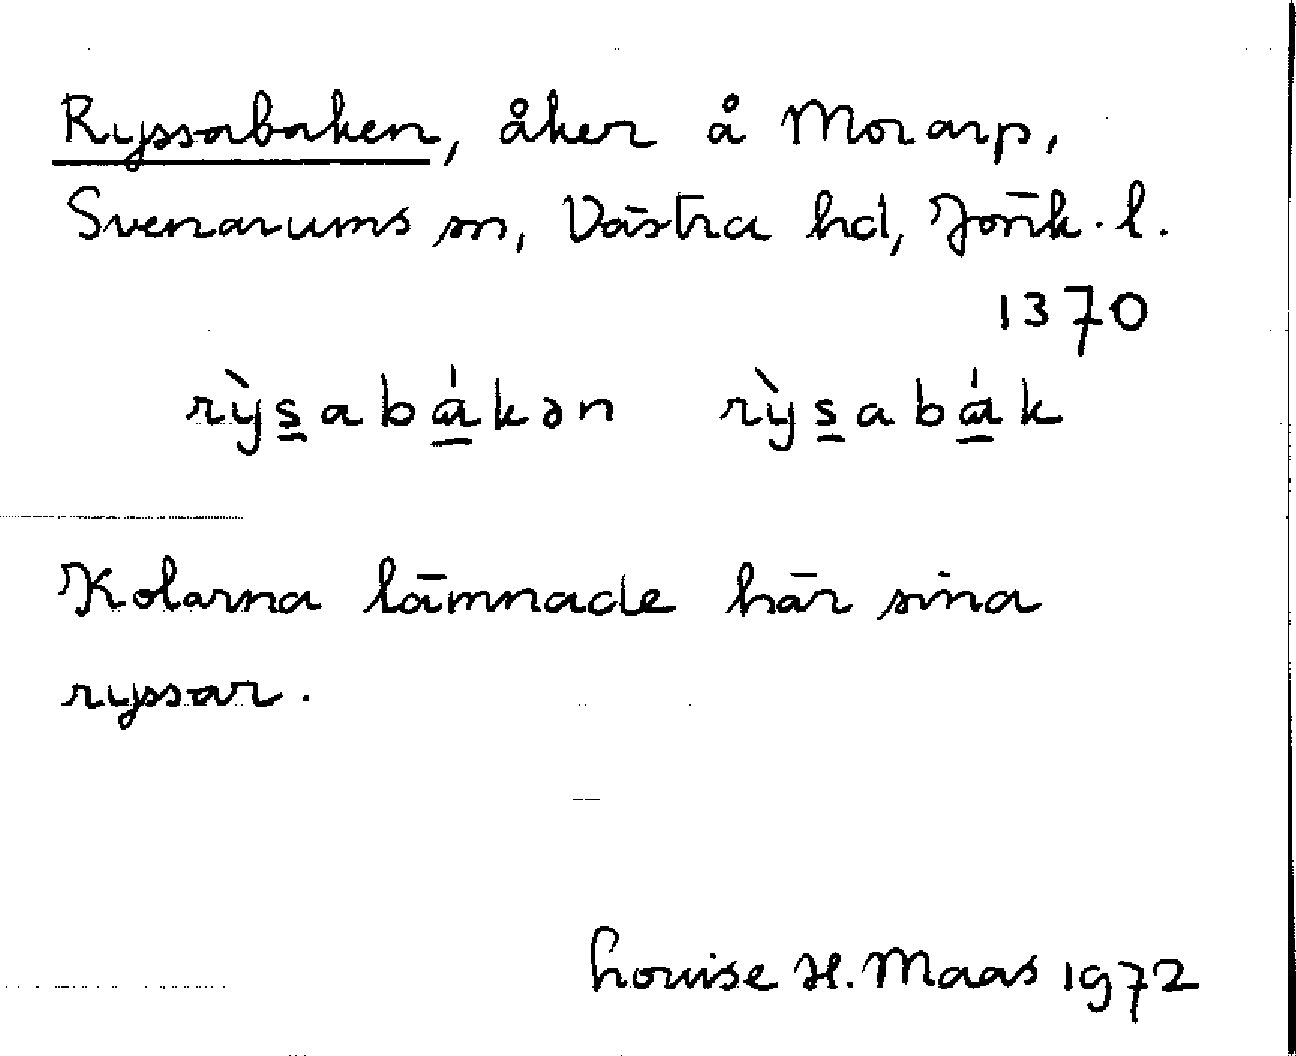 Ryssabaken, åker å Morarp,
Svenarums sn, Västra hd, Jönk. l.
1370
rỳs̲abá̲kən rỳs̲abá̲k
Kolarna lämnade här sina
ryssar.
Louise H. Maas 1972